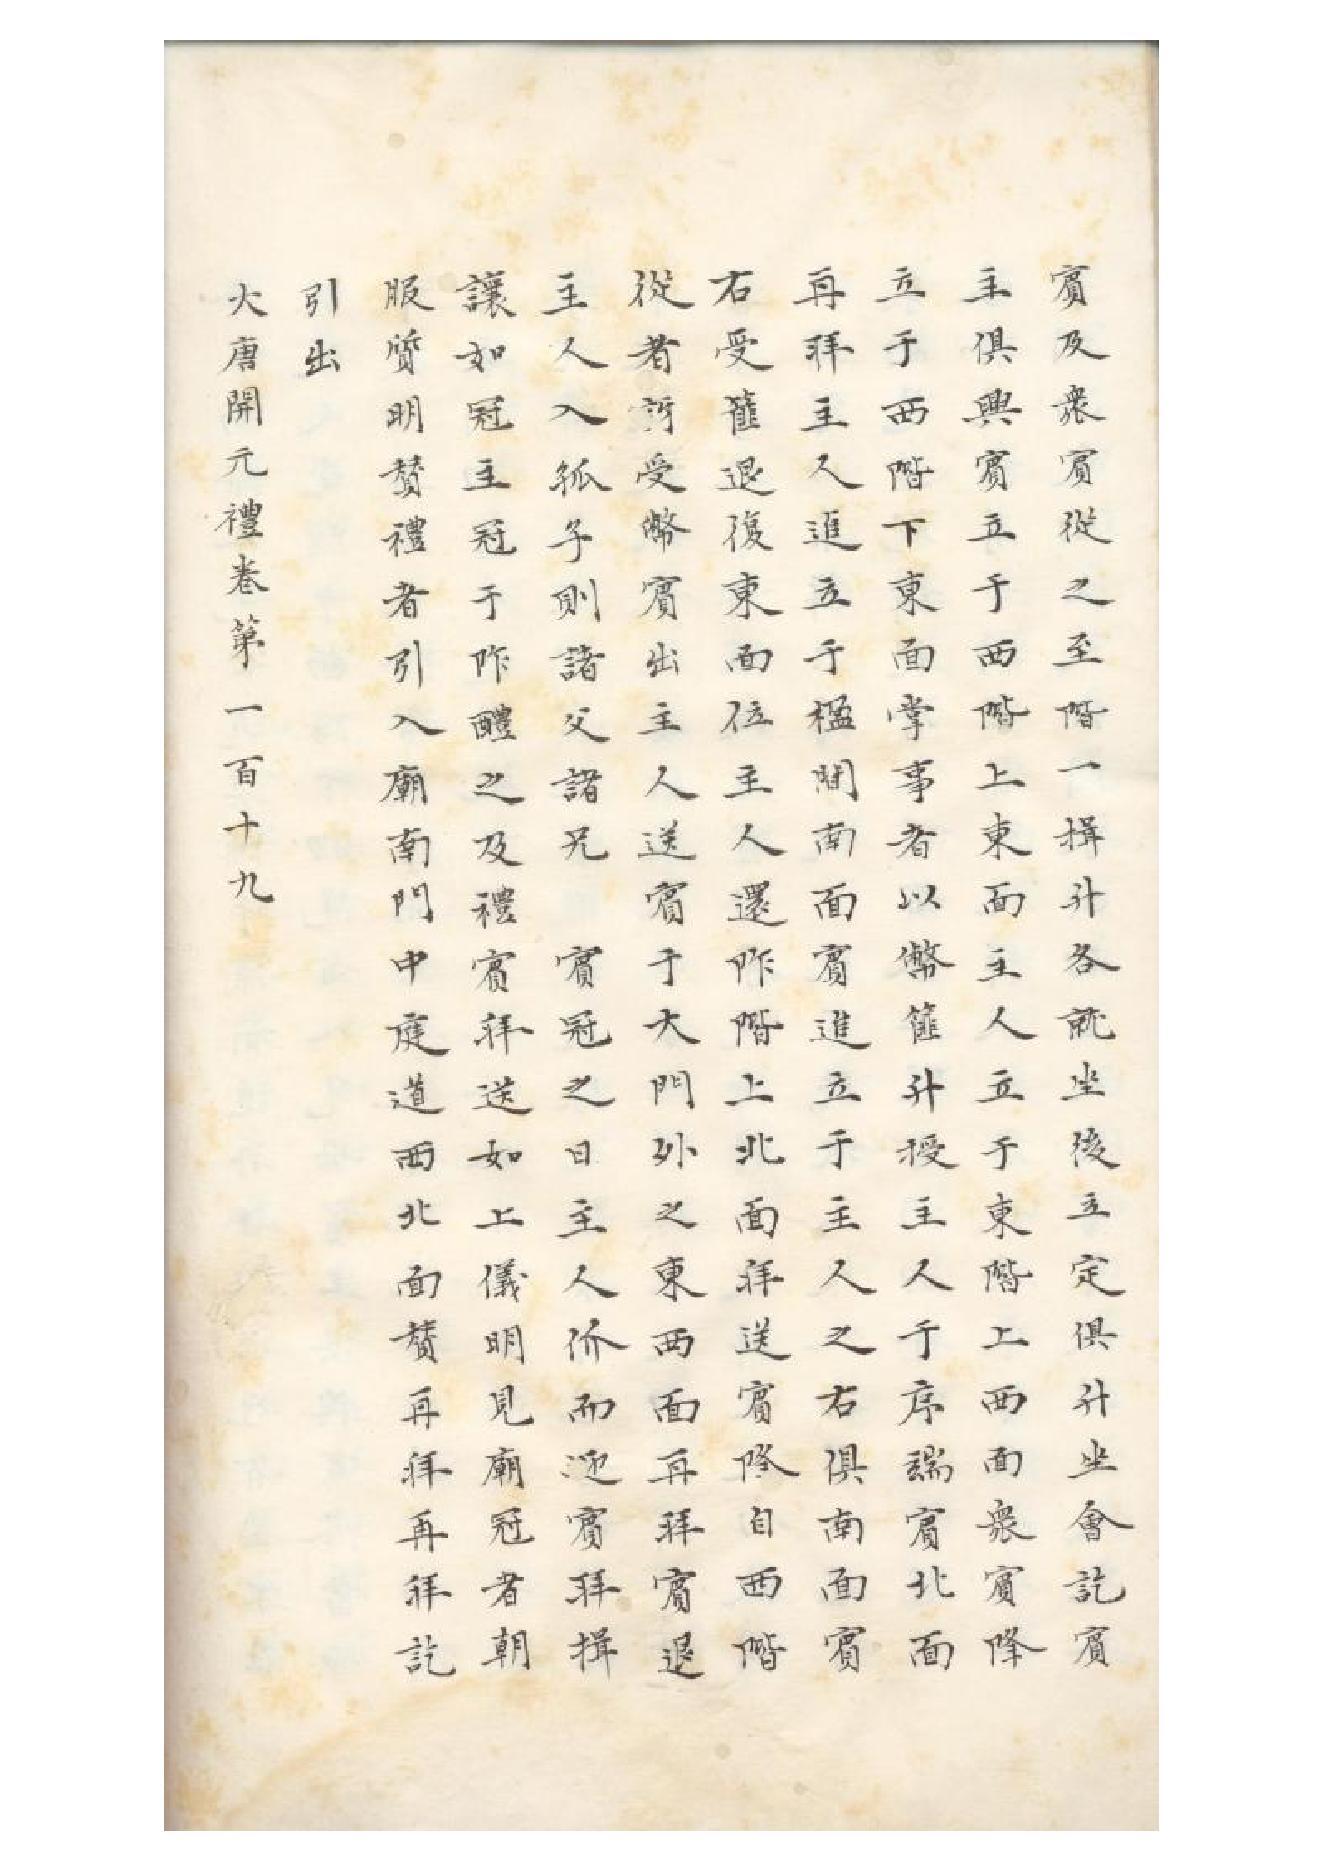 賓及衆賓從之至階一揖升各就坐後立定俱升坐會訖賓
主俱興賓立于西階上東面主人立于東階上西面衆賓降
立于西階下東面掌事者以幣篚升授主人于序端賓北面
再拜主人進立于楹間南面賓進立于主人之右俱南面賓
右受篚退復東面位主人還阼階上北面拜送賓降自西階
從者訝受幣賓出主人送賓于大門外之東西面再拜賓退
主人入孤子則諸父諸兄　賓冠之日主人㑊而迎賓拜揖
讓如冠主冠于阼醴之及禮賓拜送如上儀明見廟冠者朝
服質明賛禮者引入廟南門中庭道西北面賛再拜再拜訖
引出
大唐開元禮卷第一百十九